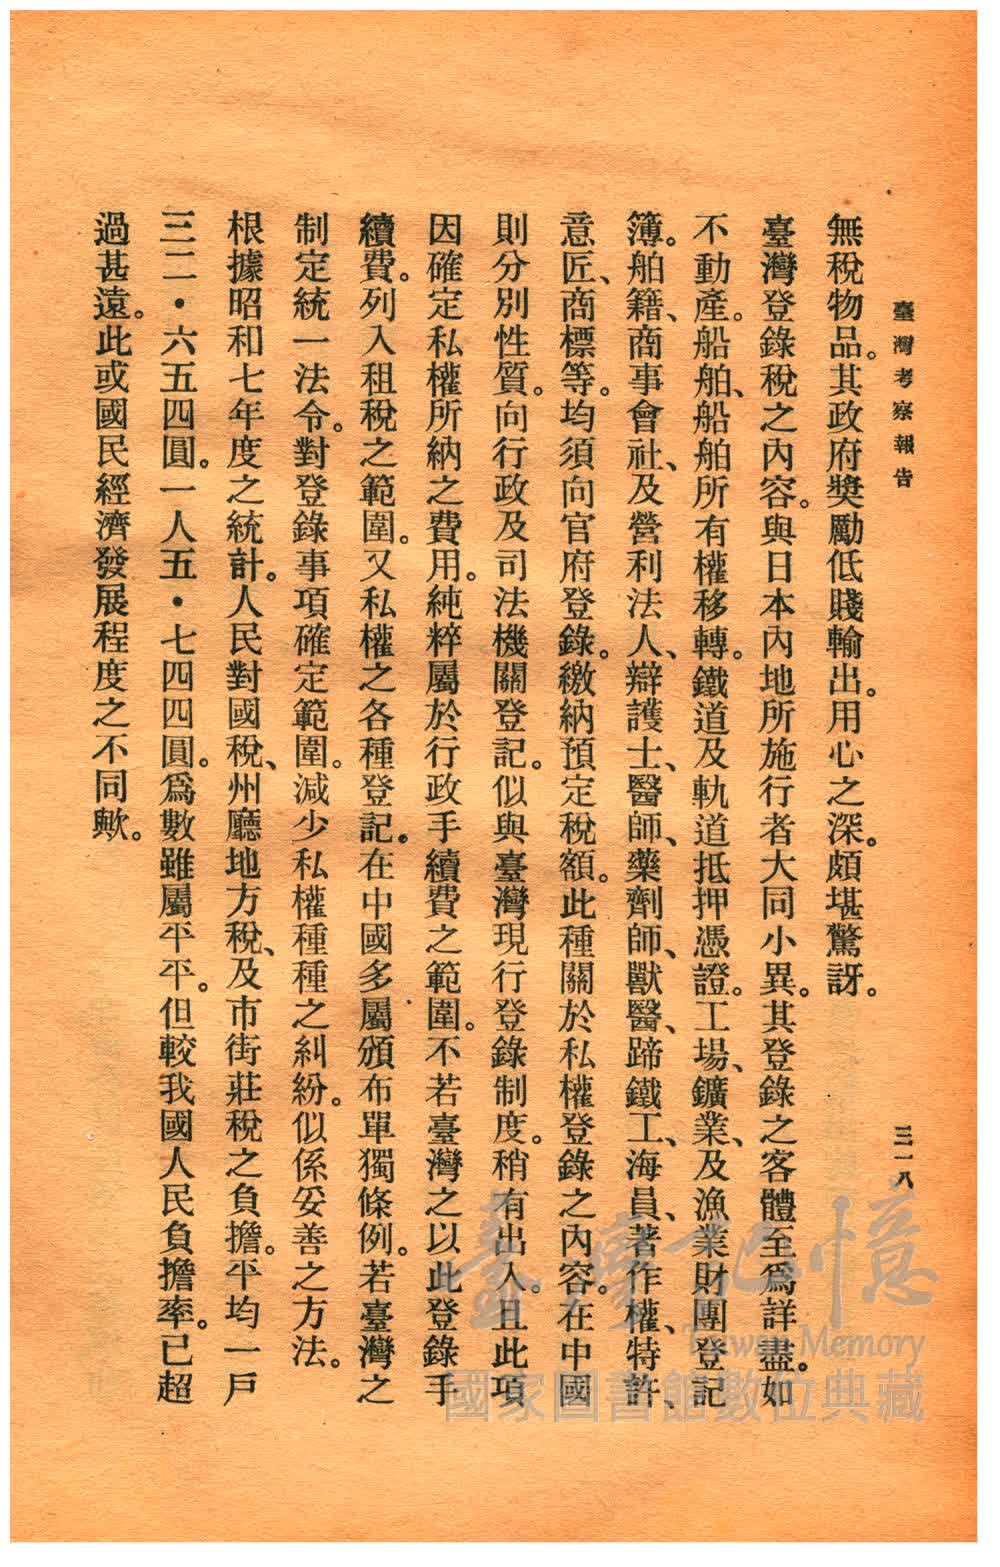 臺灣考察報告
三一八
無稅物品。其政府獎勵低賤輸出。用心之深。頗堪驚訝。
臺灣登錄稅之內容。與日本內地所施行者大同小異。其登錄之客體至爲詳盡。如
不動產。船舶、船舶所有權移轉。鐵道及軌道抵押憑證。工場、鑛業、及漁業財團登記
簿。舶籍、商事會社、及營利法人、辯護士、醫師、藥劑師、獸醫、蹄鐵工、海員、著作權、特許、
意匠、商標等。均須向官府登錄。繳納預定稅額。此種關於私權登錄之內容。在中國
則分別性質。向行政及司法機關登記。似與臺灣現行登錄制度。稍有出入。且此項
因確定私權所納之費用。純粹屬於行政手續費之範圍。不若臺灣之以此登錄手
續費。列入租稅之範圍。又私權之各種登記。在中國多屬頒布單獨條例。若臺灣之
制定統一法令。對登錄事項確定範圍。減少私權種種之糾紛。似係妥善之方法。
根據昭和七年度之統計。人民對國稅、州廳地方稅、及市街莊稅之負擔。平均一戶
三二・六五四圓。一人五・七四四圓。爲數雖屬平平。但較我國人民負擔率。已超
過甚遠。此或國民經濟發展程度之不同歟。
臺灣記憶
Taiwan Memory
國家圖書館數位典藏